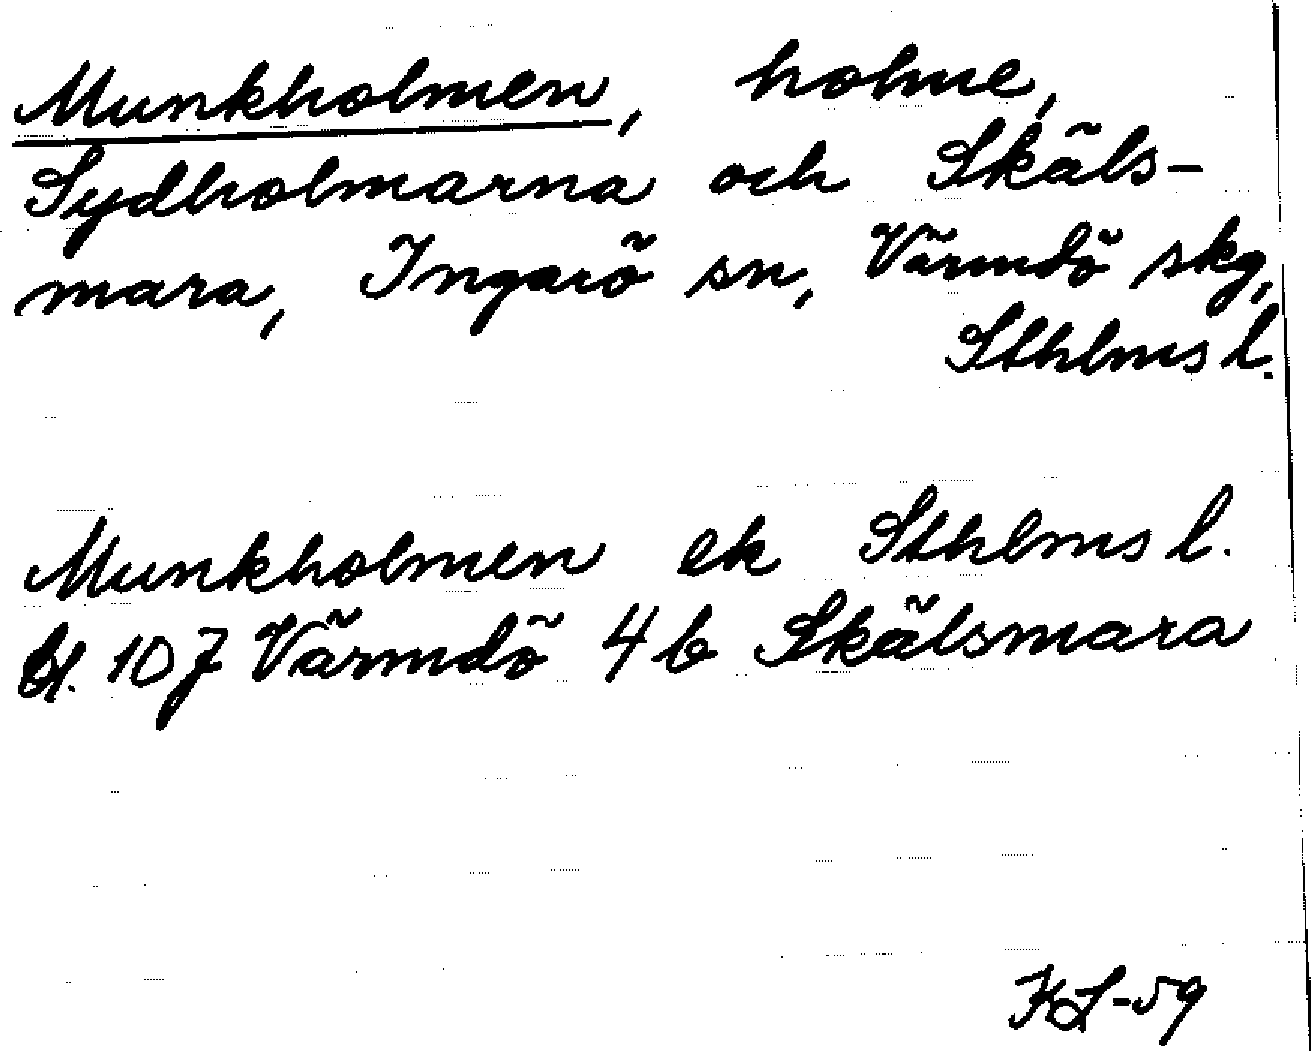 Munkholmen, holme,
Sydholmarna och Skäls-
mara, Ingarö sn, Värmdö skg,
Sthlms l.
Munkholmen ek Sthlms l.
bl. 107 Värmdö 4b Skälsmara
KL-59